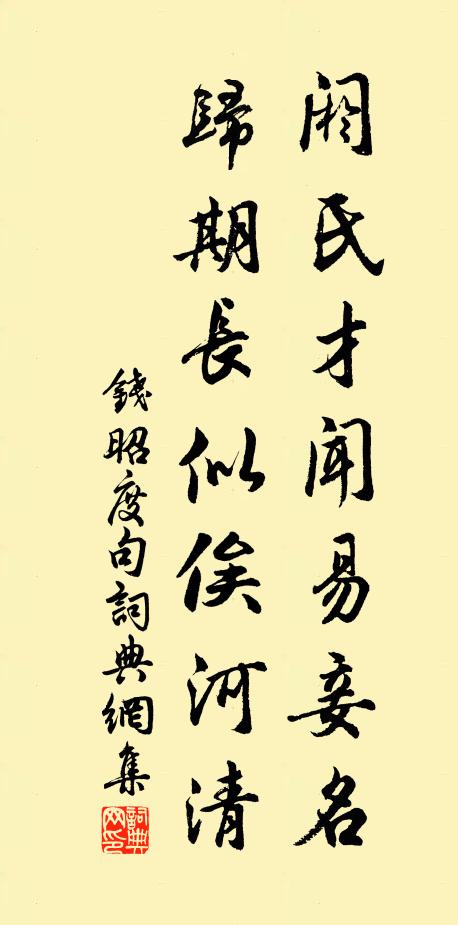 閼氏才聞易妾名
歸期長似俟河清
錢昭度句詞典網集
詞典网印